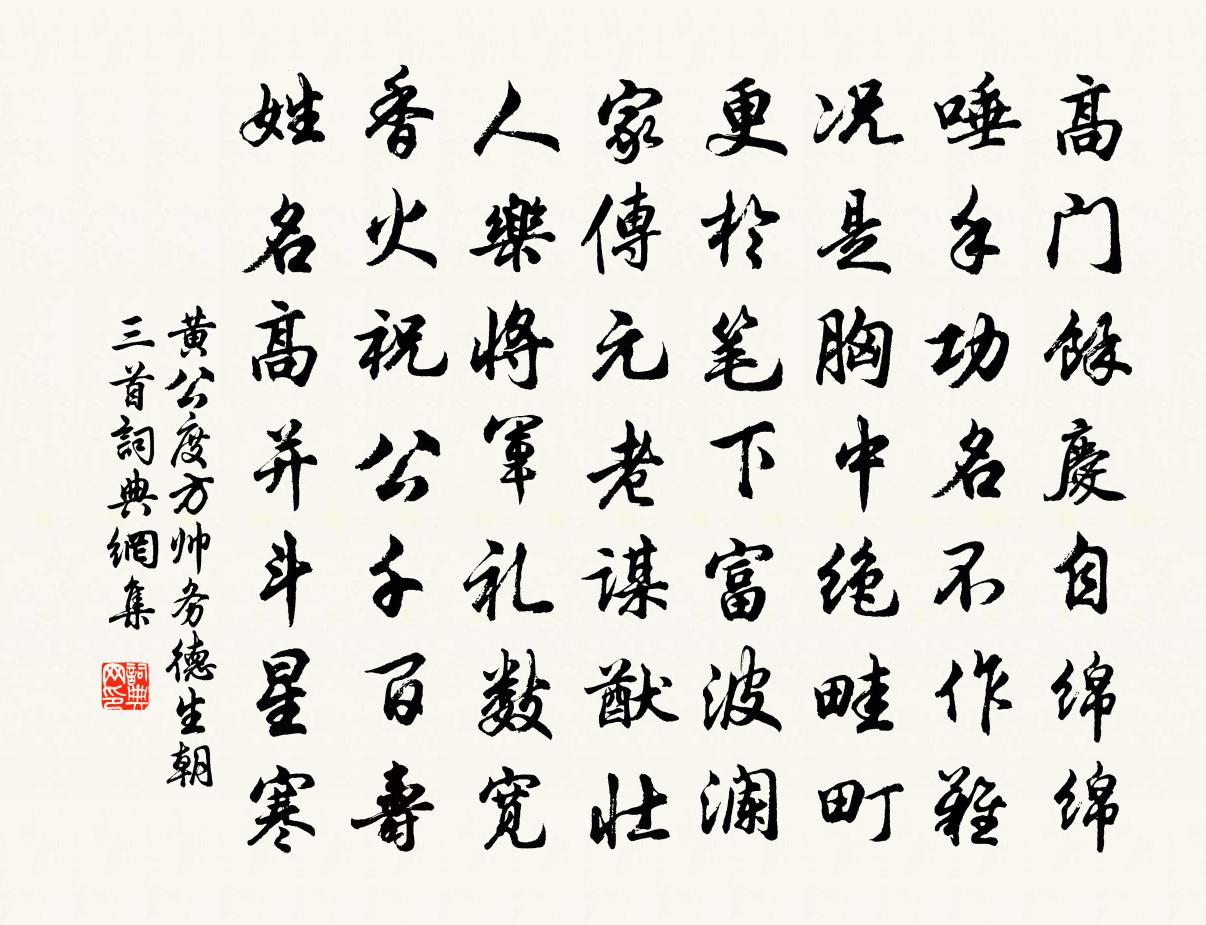 高门餘慶自綿綿
唾手功名不作難
况是胸中绝畦町
更於笔下富波澜
家傳元老謀猷壯
人樂將軍礼数宽
香火祝公千百壽
姓名高并斗星寒
黄公度方帅务德生朝
三首詞典網集
詞典
网印